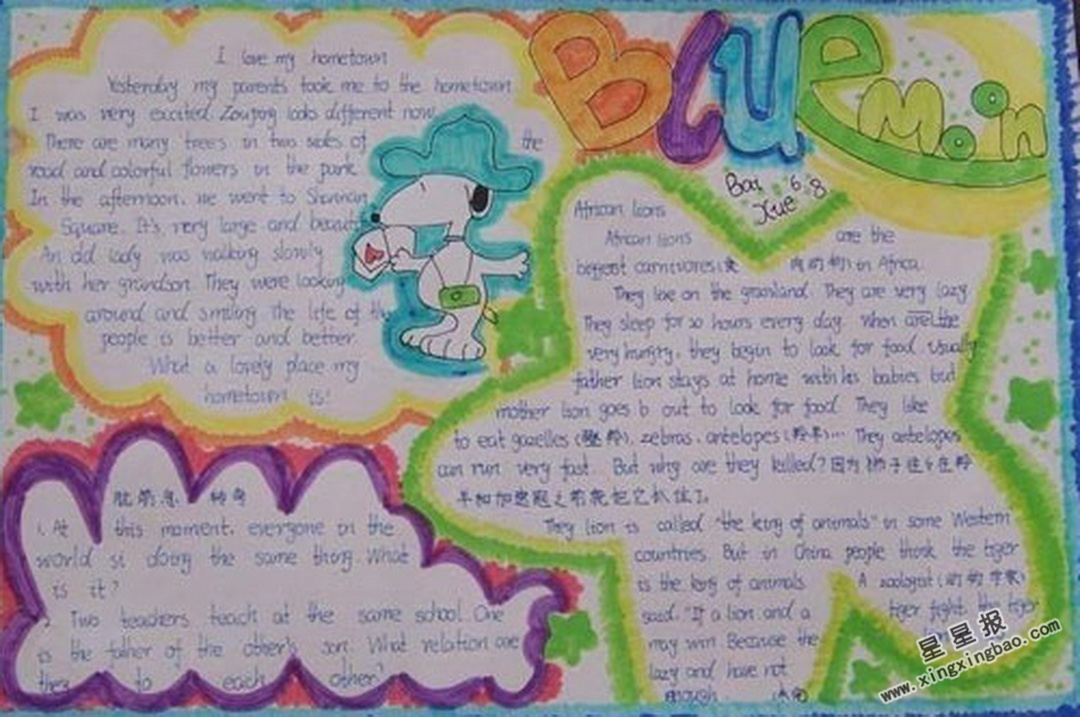 I love my hometown
Yesterday my parents took me to the hometown.
I was very excited. Zouping looks different now.
There are many trees in two sides of the
road and colorful flowers in the park.
In the afternoon, we went to
Square. It's very large and beauti
An old lady was walking slowly
with her grandson. They were looking
around and smiling. The life of the
people is better and better.
What a lovely place my
hometown is!
Blue
Moon
Bai 6.8
Xue
African lions
African lions are the
biggest carnivores(食肉动物) in Africa.
They live on the granland. They are very lazy
They sleep for 20 hours every day. When are the
very hungry, they begin to look for food. Usually
father lion stays at home with his babies but
mother lion goes b out to look for food. They like
to eat gazelles(瞪羚), zebras, antelopes(羚羊)… They antelopes
can run very fast. But why are they killed?因为狮子往往在羚
羊加速之前就把它抓住了。
They lion is called "the king of animals" in some Western
countries. But in China people think the tiger
is the king of animals. A zoologist(动物学家)
said. "If a lion and a tiger fight, the tiger
may win. Because the
lazy and have not
enough
脑筋急转弯
1. At this moment, everyone in the
world si doing the same thing. What
is it?
2. Two teachers teach at the same school. One
is the father of the other's son. What relation are
they to each other?
星星报
www.xingxingbao.com